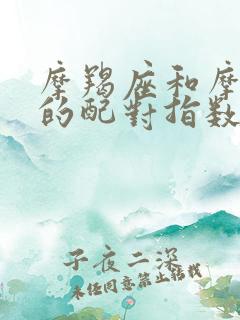 摩羯座和摩
的配對指数
子夜二深
未经同意禁止搭载